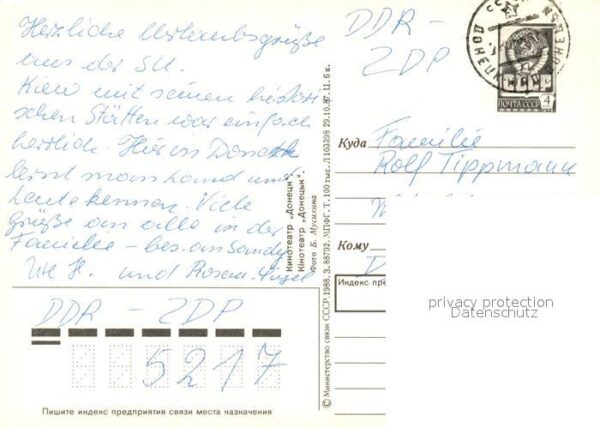 Herzliche Urlaubsgrüße
aus der SU.
Kiew mit seinen histori
schen Stätten war einfach
herrlich. Hier in Donezk
lernt man Land und
Leute kennen. Viele
Grüße an alle in der
Familie - bes. an Sandy
Uwe H. und Rosen-
DDR - ZDP
5217
Пишите индекс предприятия связи места назначения
Кинотеатр „Донецк“.
Кінотеатр „Донецьк“.
Фото Б. Мусихина
© Министерство связи СССР. 1988. З. 88792. МПФГ. Т. 100 тыс. Л 103398 29.10.87. Ц. 6 к.
DDR -
ZDP
ПОЧТА СССР
4
Куда Familie
Rolf Tippmann
Кому
Индекс пре
privacy protection
Datenschutz